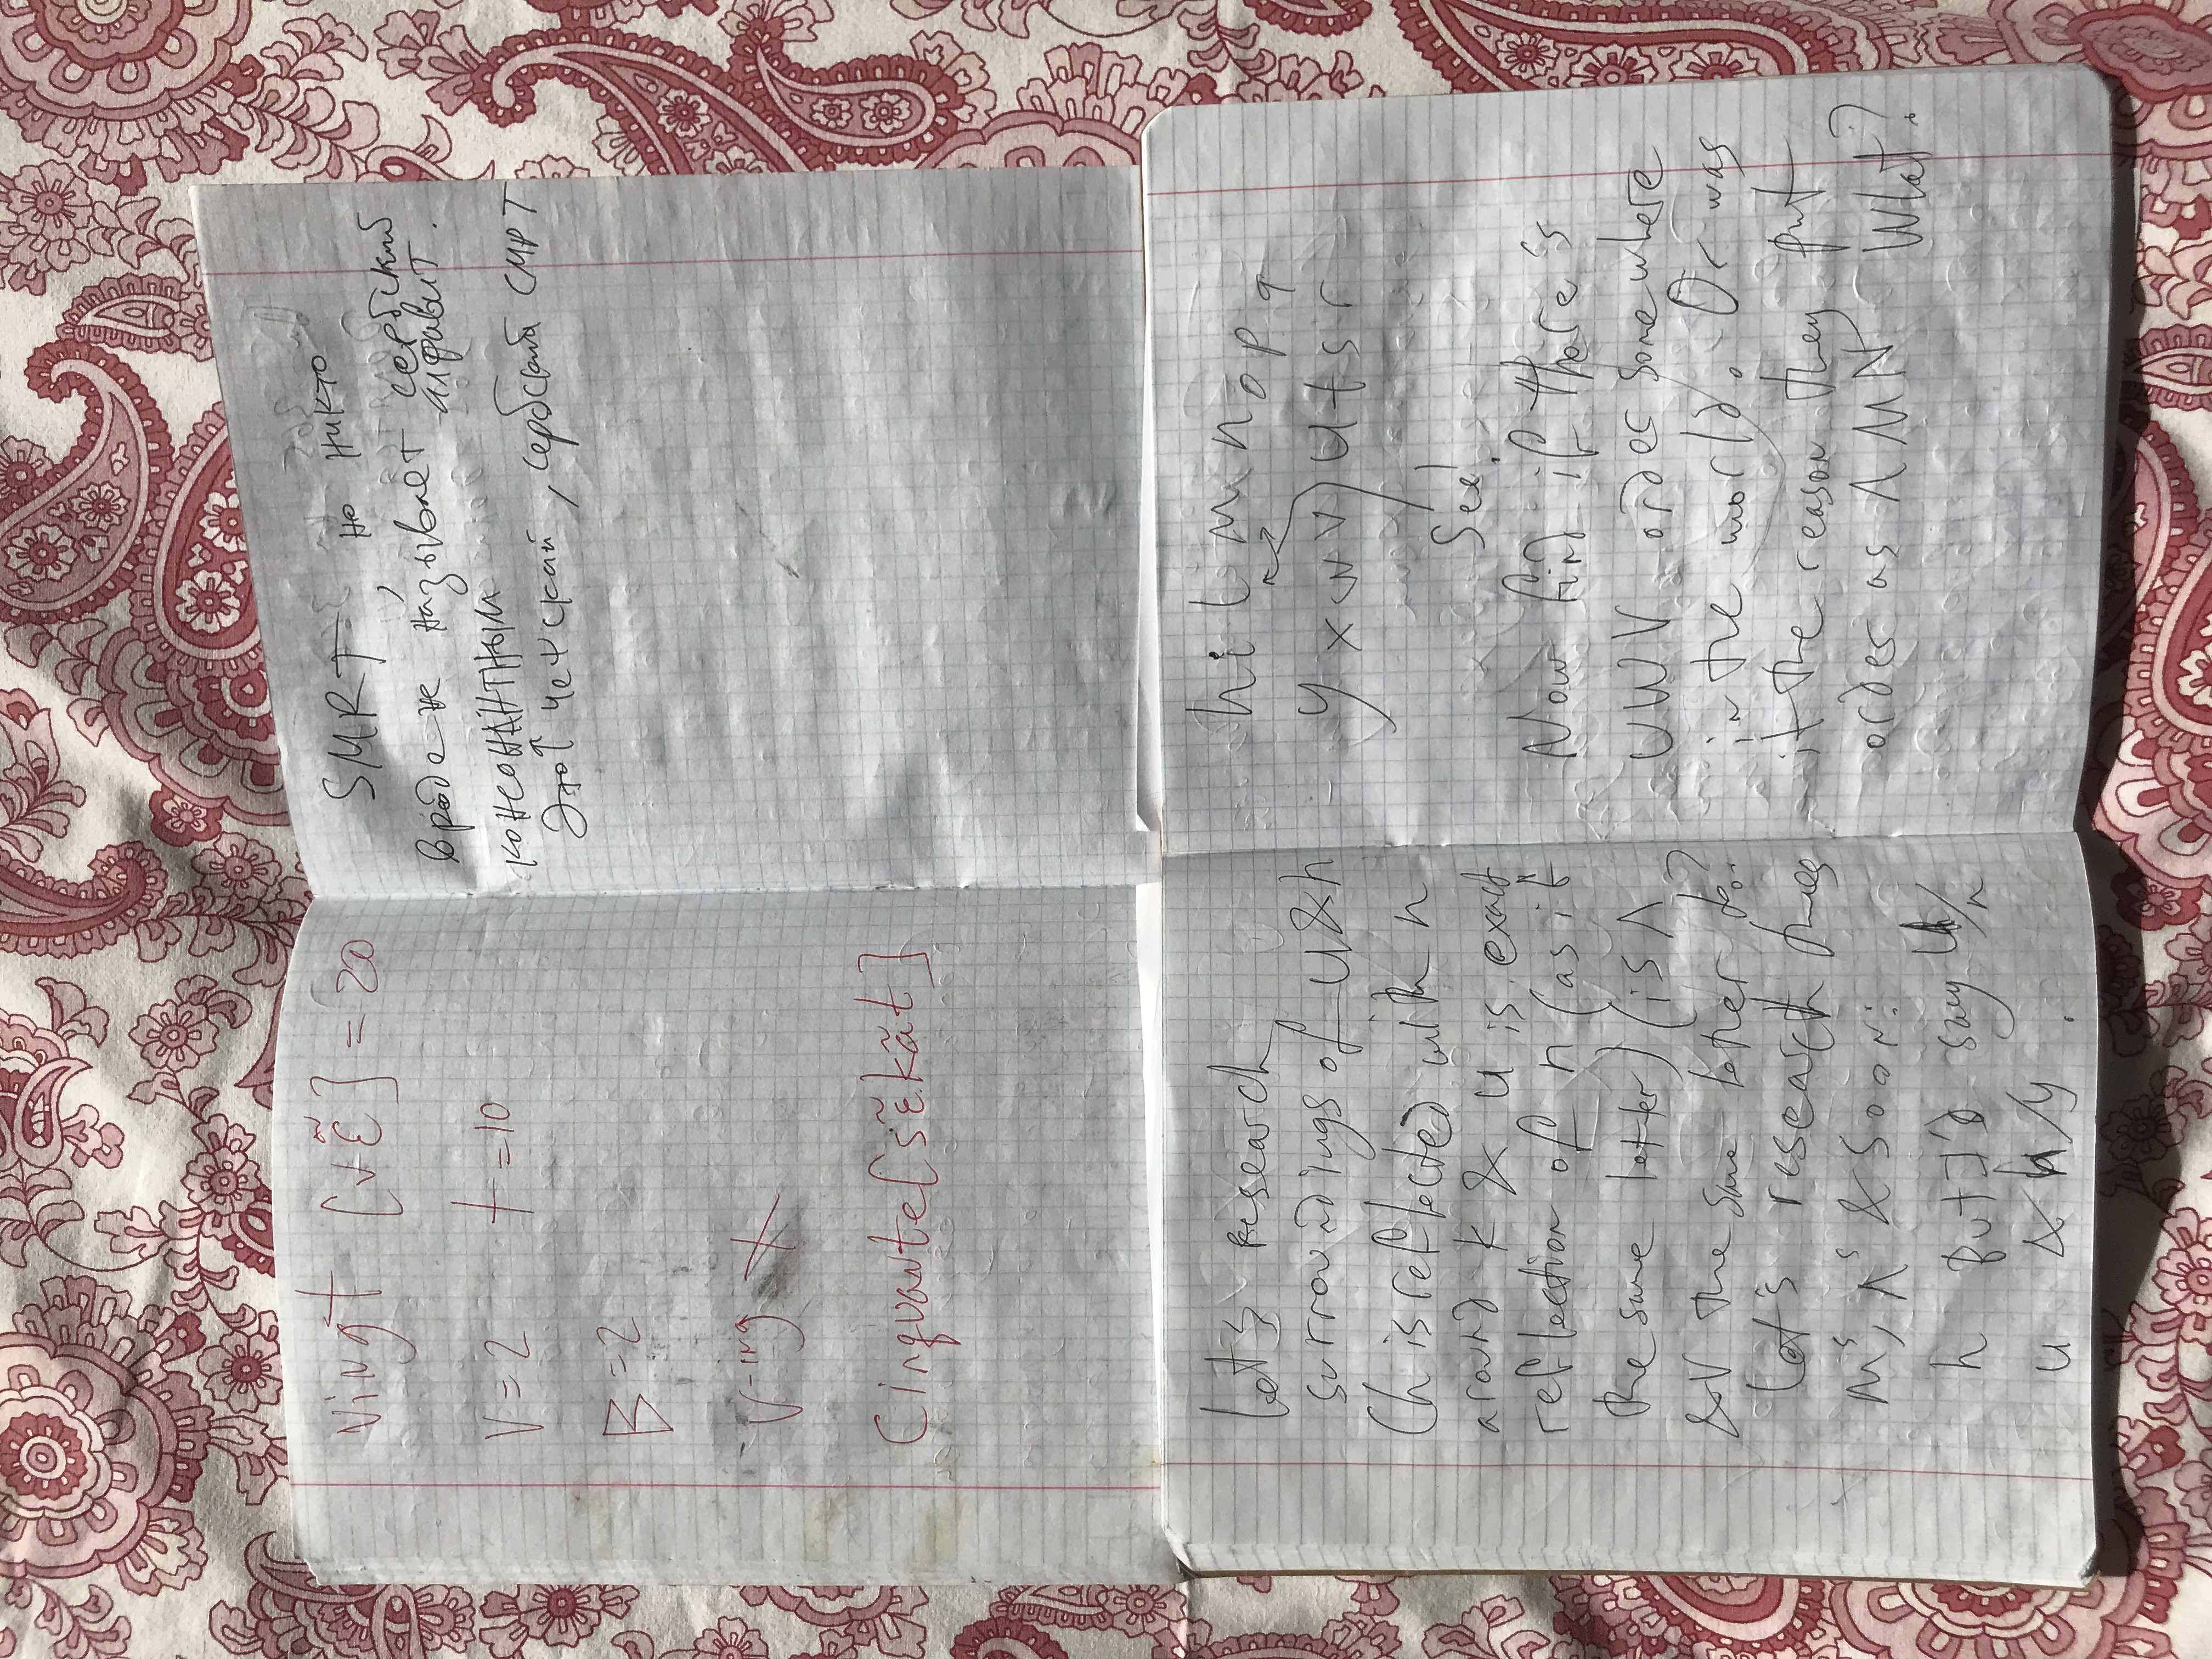 vingt [vɛ̃] = 20
V = 2 t = 10
B = 2
V-ing X
Cinquante [sɛ̃kãt]
SMRT, но никто
вроде не называет сербский
алфавит.
консонантным
Этот чешский, сербский СМРТ
Let's research
surroundings of u & h
(h is reflected with n
around k & u is exact
reflection of n (as if
the same letter) (is Λ
& V the same letter do?
Let's research
M's, Λ's & so on:
h But I'd say u/n
u & h/y.
h i l m n o p q
y x w v u t s r
See!
Now find if there's
UWV order somewhere
in the world. Or was
it the reason they put
order as Λ M N What?